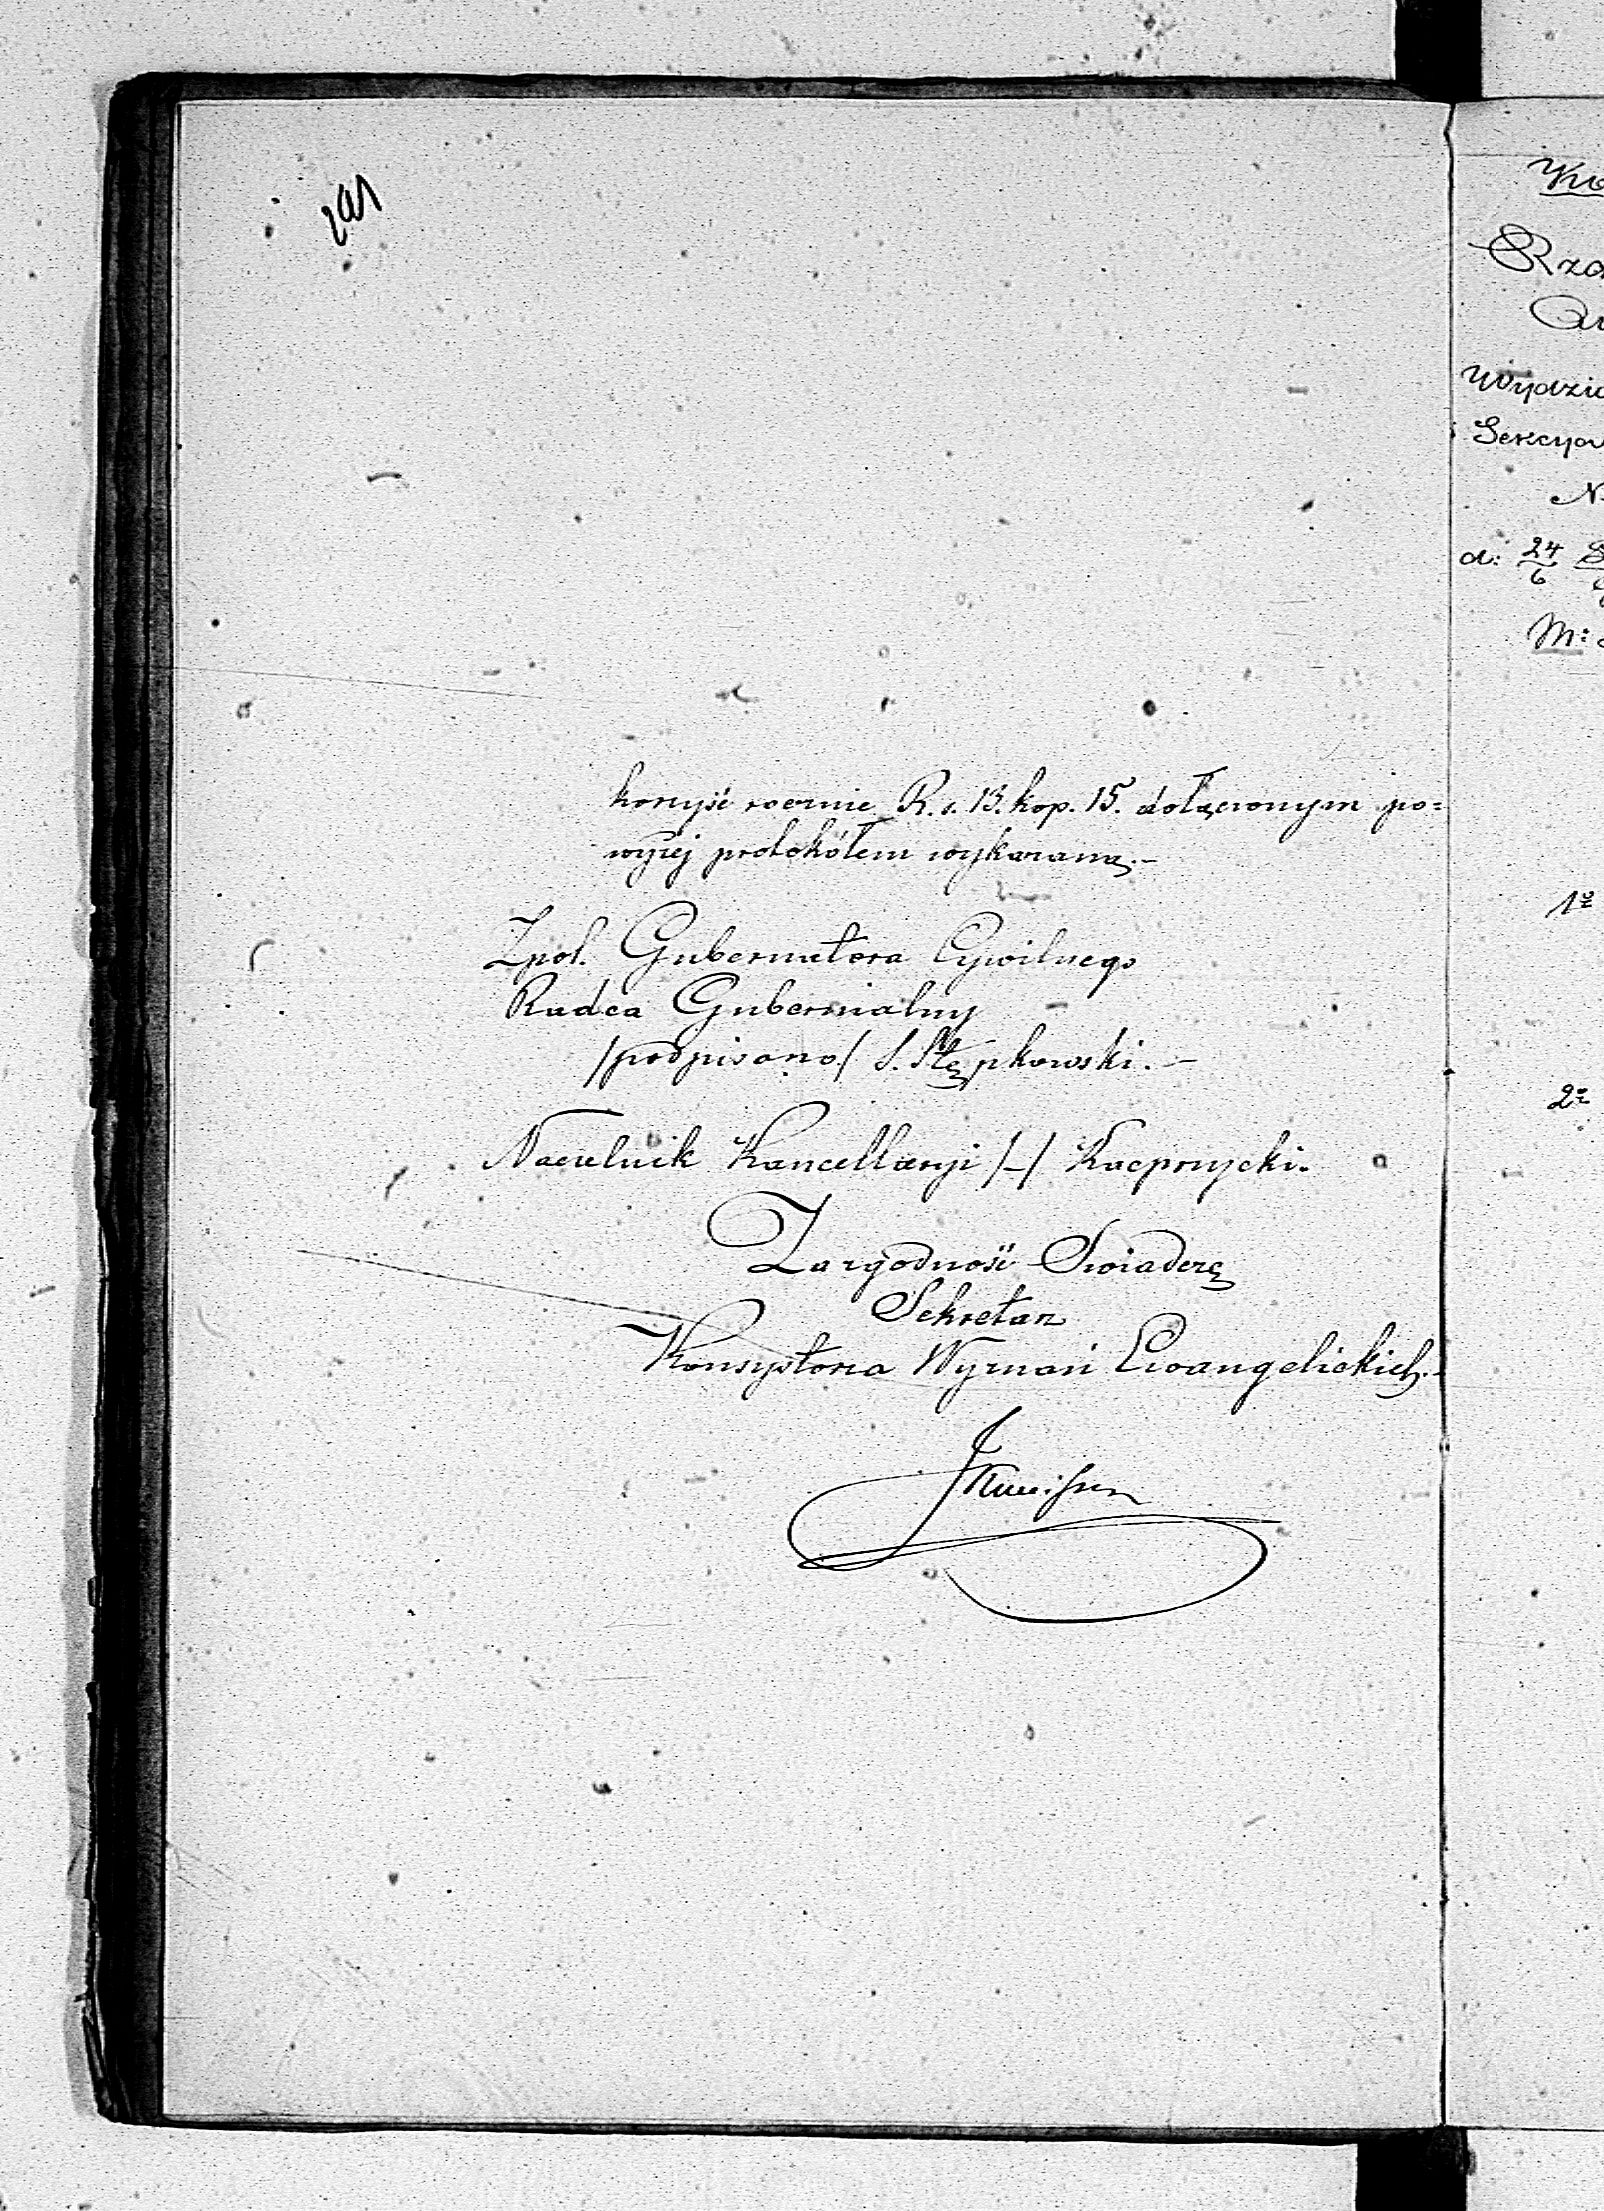 korzyść rocznie R.s. 13. kop. 15. dołączonym po=
wyżej protokółem wykazaną.–
Zpol. Gubernatora Cywilnego
Radca Gubernialny
/podpisano/ S. Stępkowski.–
Naczelnik Kancellaryi /–/ Kacprzycki.
Za zgodność Swiadczę
Sekretarz
Konsystorza Wyznań Ewangelickich.–
d: 24/6
M:
1º
2º